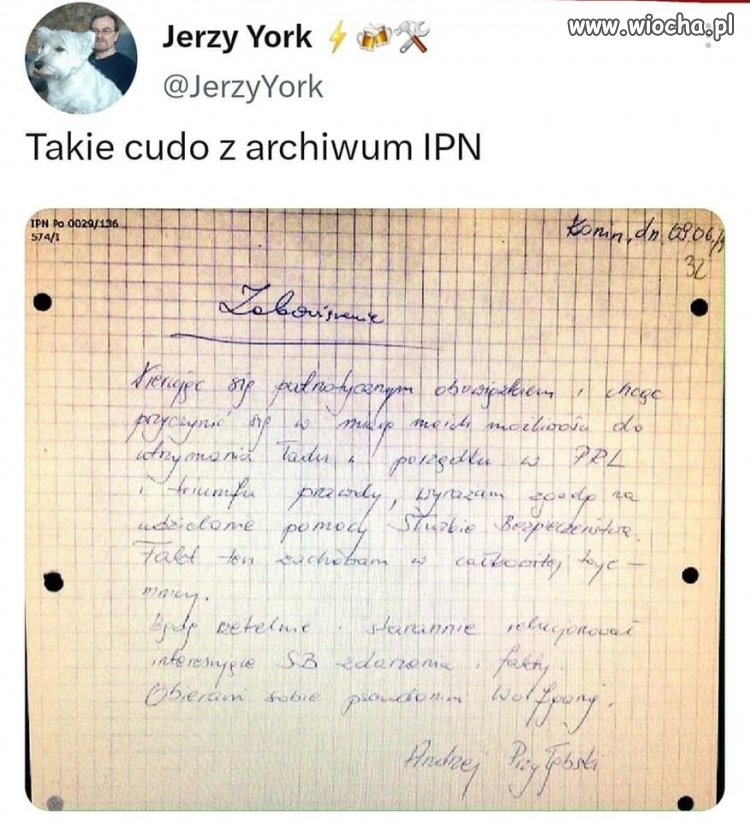 www.wiocha.pl
Jerzy York ⚡🍻⚒️
@JerzyYork
Takie cudo z archiwum IPN
IPN Po 0029/136
574/1
Konin, dn. 09.06.
32
Zobowiązanie
Kierując się patriotycznym obowiązkiem i chcąc
przyczynić się w miarę moich możliwości do
utrzymania ładu i porządku w PRL
i triumfu prawdy, wyrażam zgodę na
udzielanie pomocy Służbie Bezpieczeństwa.
Fakt ten zachowam w całkowitej taje-
mnicy.
Będę rzetelnie i starannie relacjonował
interesujące SB zdarzenia i fakty.
Obieram sobie pseudonim Wolfgang.
Andrzej Przyłębski